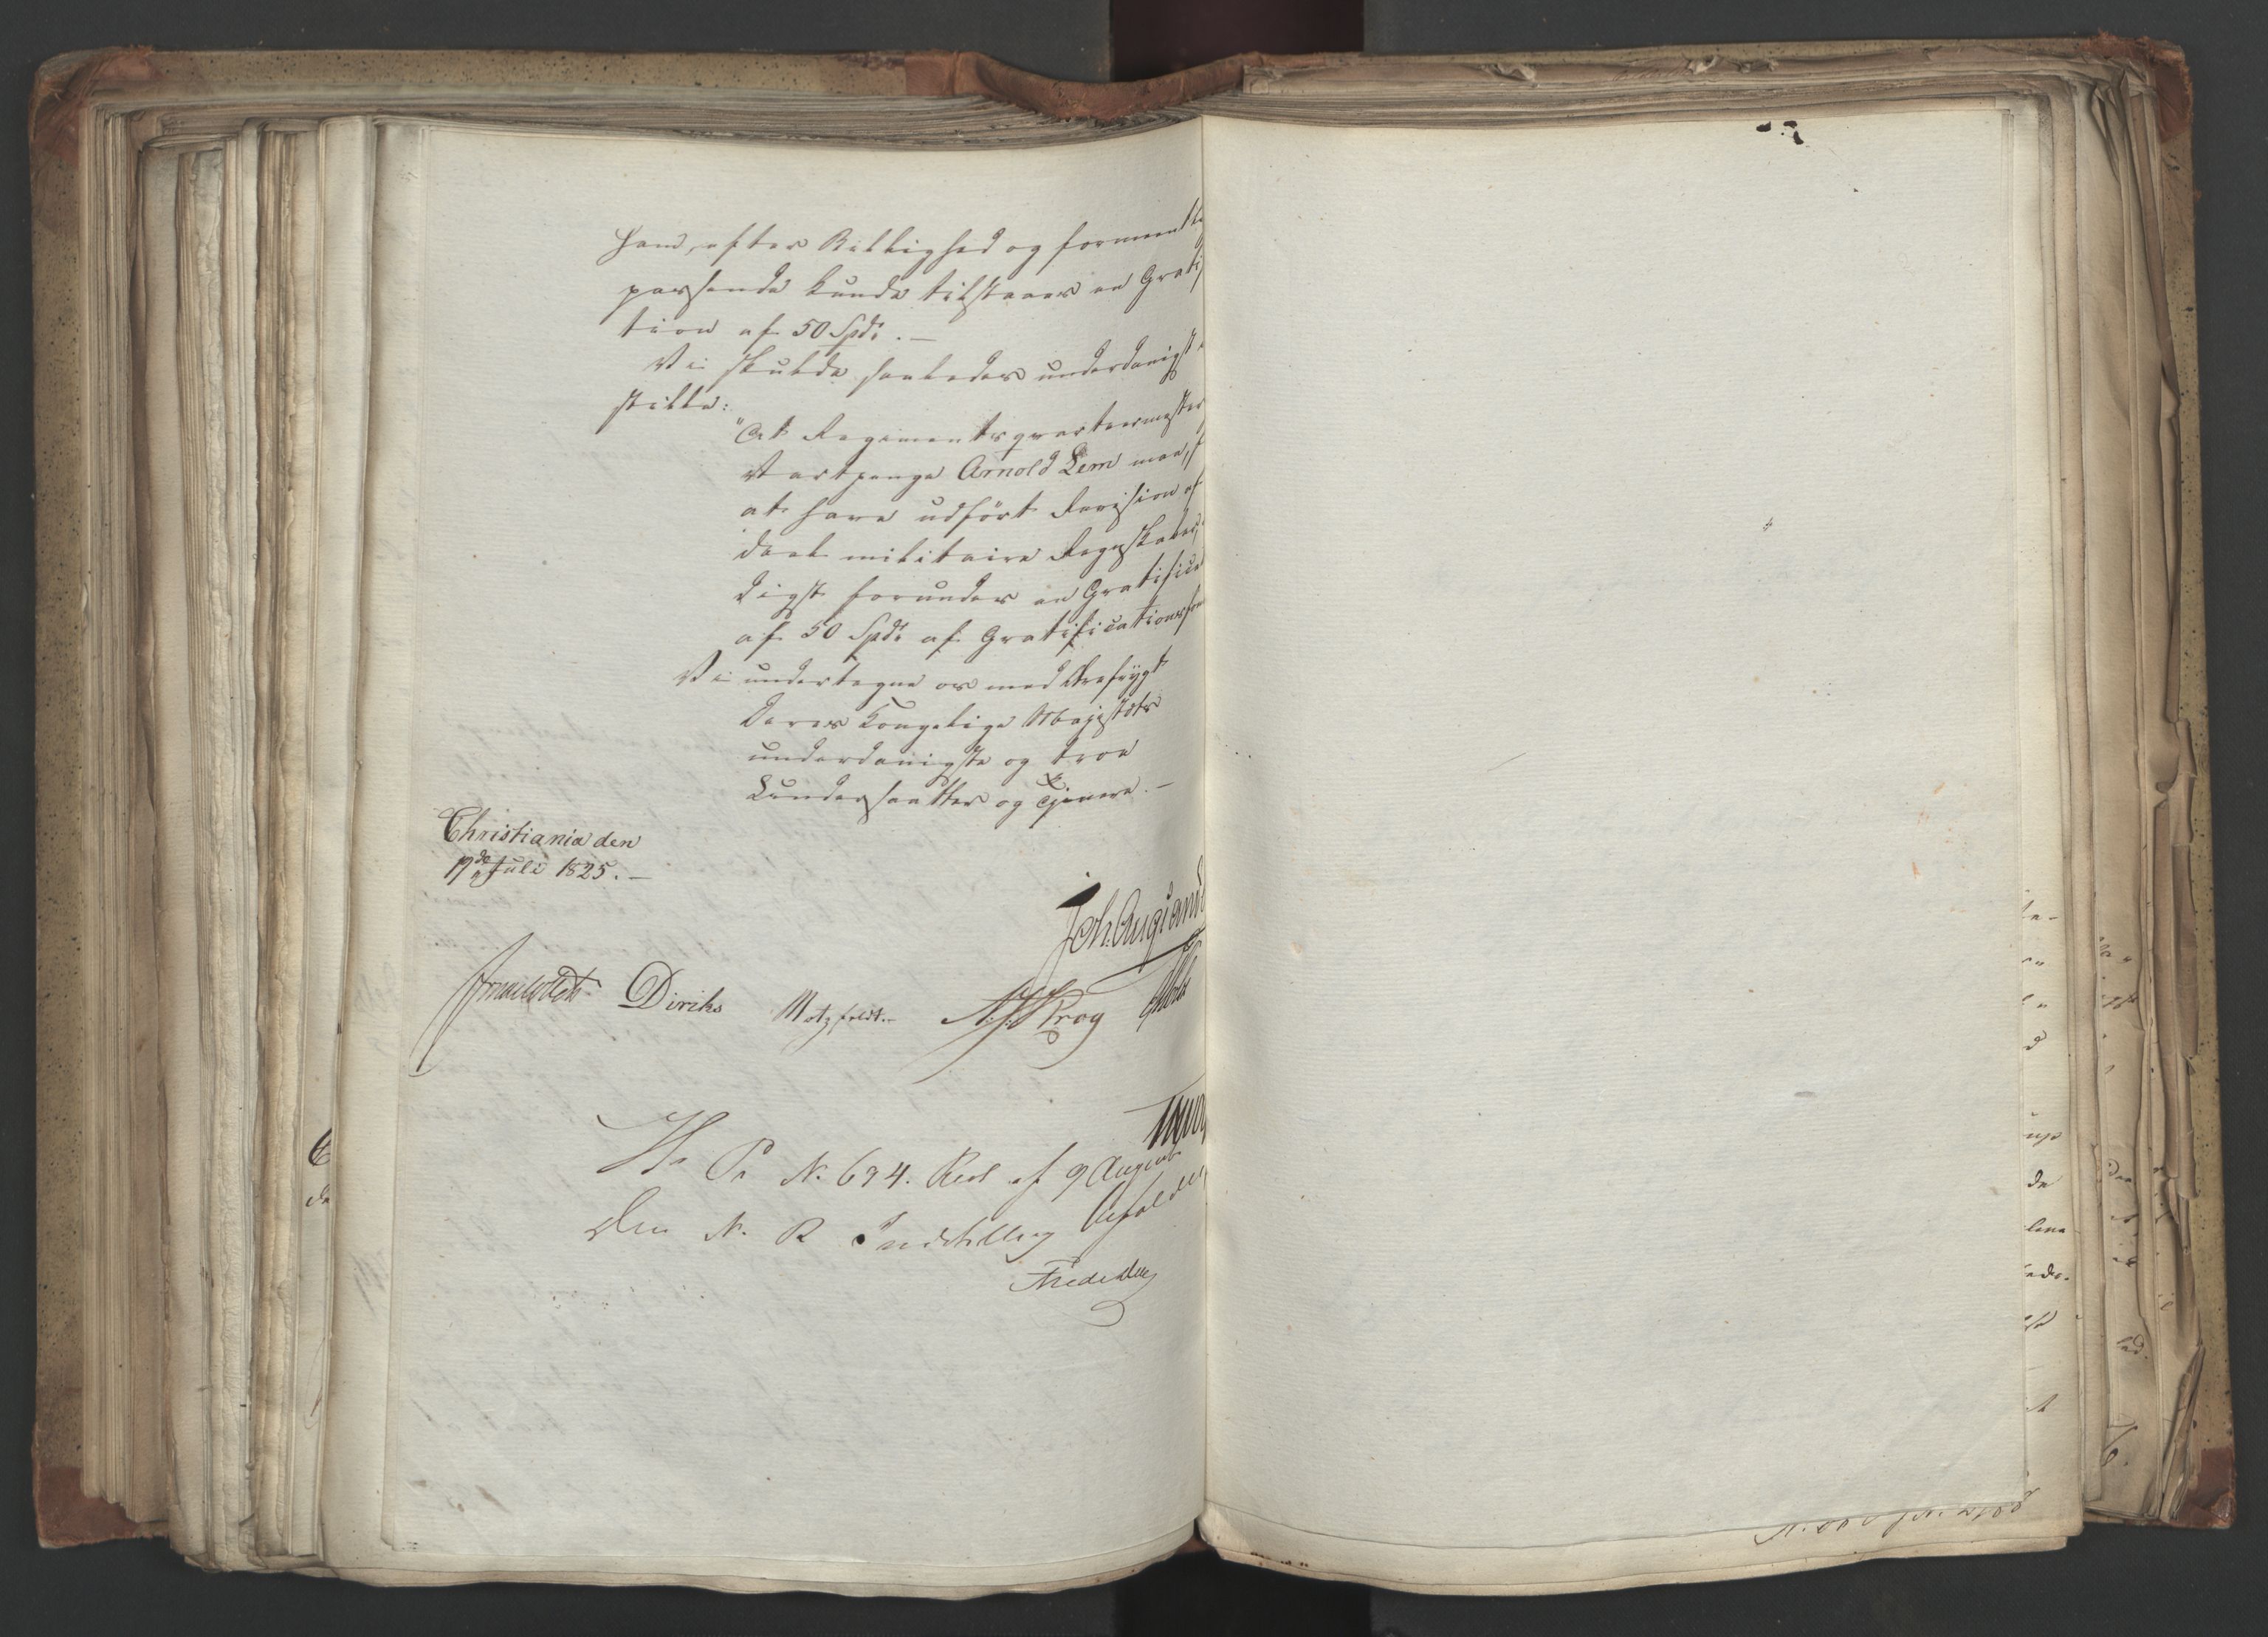 ham, efter Billighed og formeent
passende kunde tilstaaes en Grati
tion af 50 Spd. . —
Vi skulde saaledes underdanigst
stille:
"At Regimentsqvarteermester
Vartpenge Arnold Lem maa, f
at have udført Revision af
deel militaire Regnskaber,
digst forundes en Gratifica
af 50 Spd. af Gratificationsfon
Vi undertegne os med Ærefrygt
Deres Kongelige Majestæts
underdanigste og troe
Undersaatter og Tjenere. —
Christiania den
19de Juli 1825. —
Diriks
Motzfeldt.
Krog
No 694. Resl af 9 August
Den N. R. Indstilling bifaldes